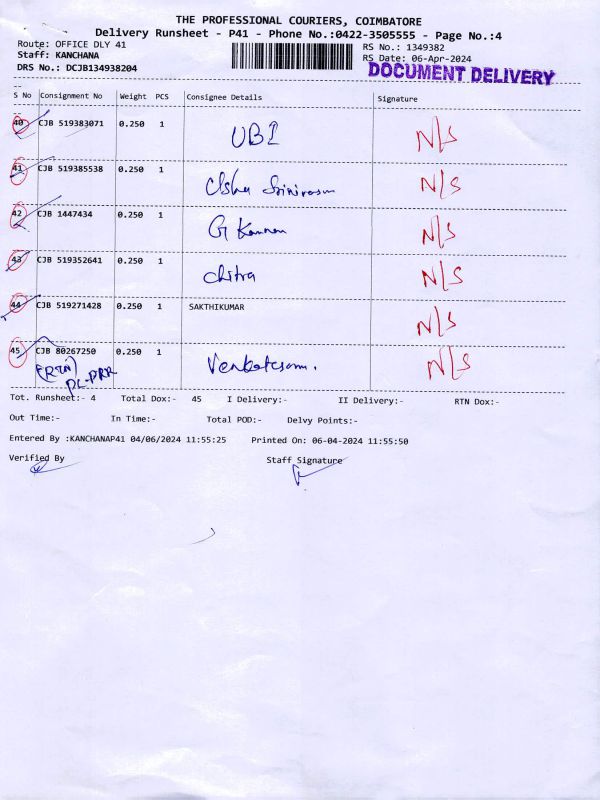 THE PROFESSIONAL COURIERS, COIMBATORE
Delivery Runsheet - P41 - Phone No.:0422-3505555 - Page No.:4
Route: OFFICE DLY 41 RS No.: 1349382
Staff: KANCHANA RS Date: 06-Apr-2024
DRS No.: DCJB134938204 DOCUMENT DELIVERY
S No Consignment No Weight PCS Consignee Details Signature
40 CJB 519383071 0.250 1 UBI N/S
41 CJB 519385538 0.250 1 Srinivasan N/S
42 CJB 1447434 0.250 1 G Kannan N/S
43 CJB 519352641 0.250 1 Chitra N/S
44 CJB 519271428 0.250 1 SAKTHIKUMAR N/S
45 CJB 80267250 0.250 1 Venkatesam. N/S
(RTN)
PL-PRR
Tot. Runsheet:- 4 Total Dox:- 45 I Delivery:- II Delivery:- RTN Dox:-
Out Time:- In Time:- Total POD:- Delvy Points:-
Entered By :KANCHANAP41 04/06/2024 11:55:25 Printed On: 06-04-2024 11:55:50
Verified By Staff Signature